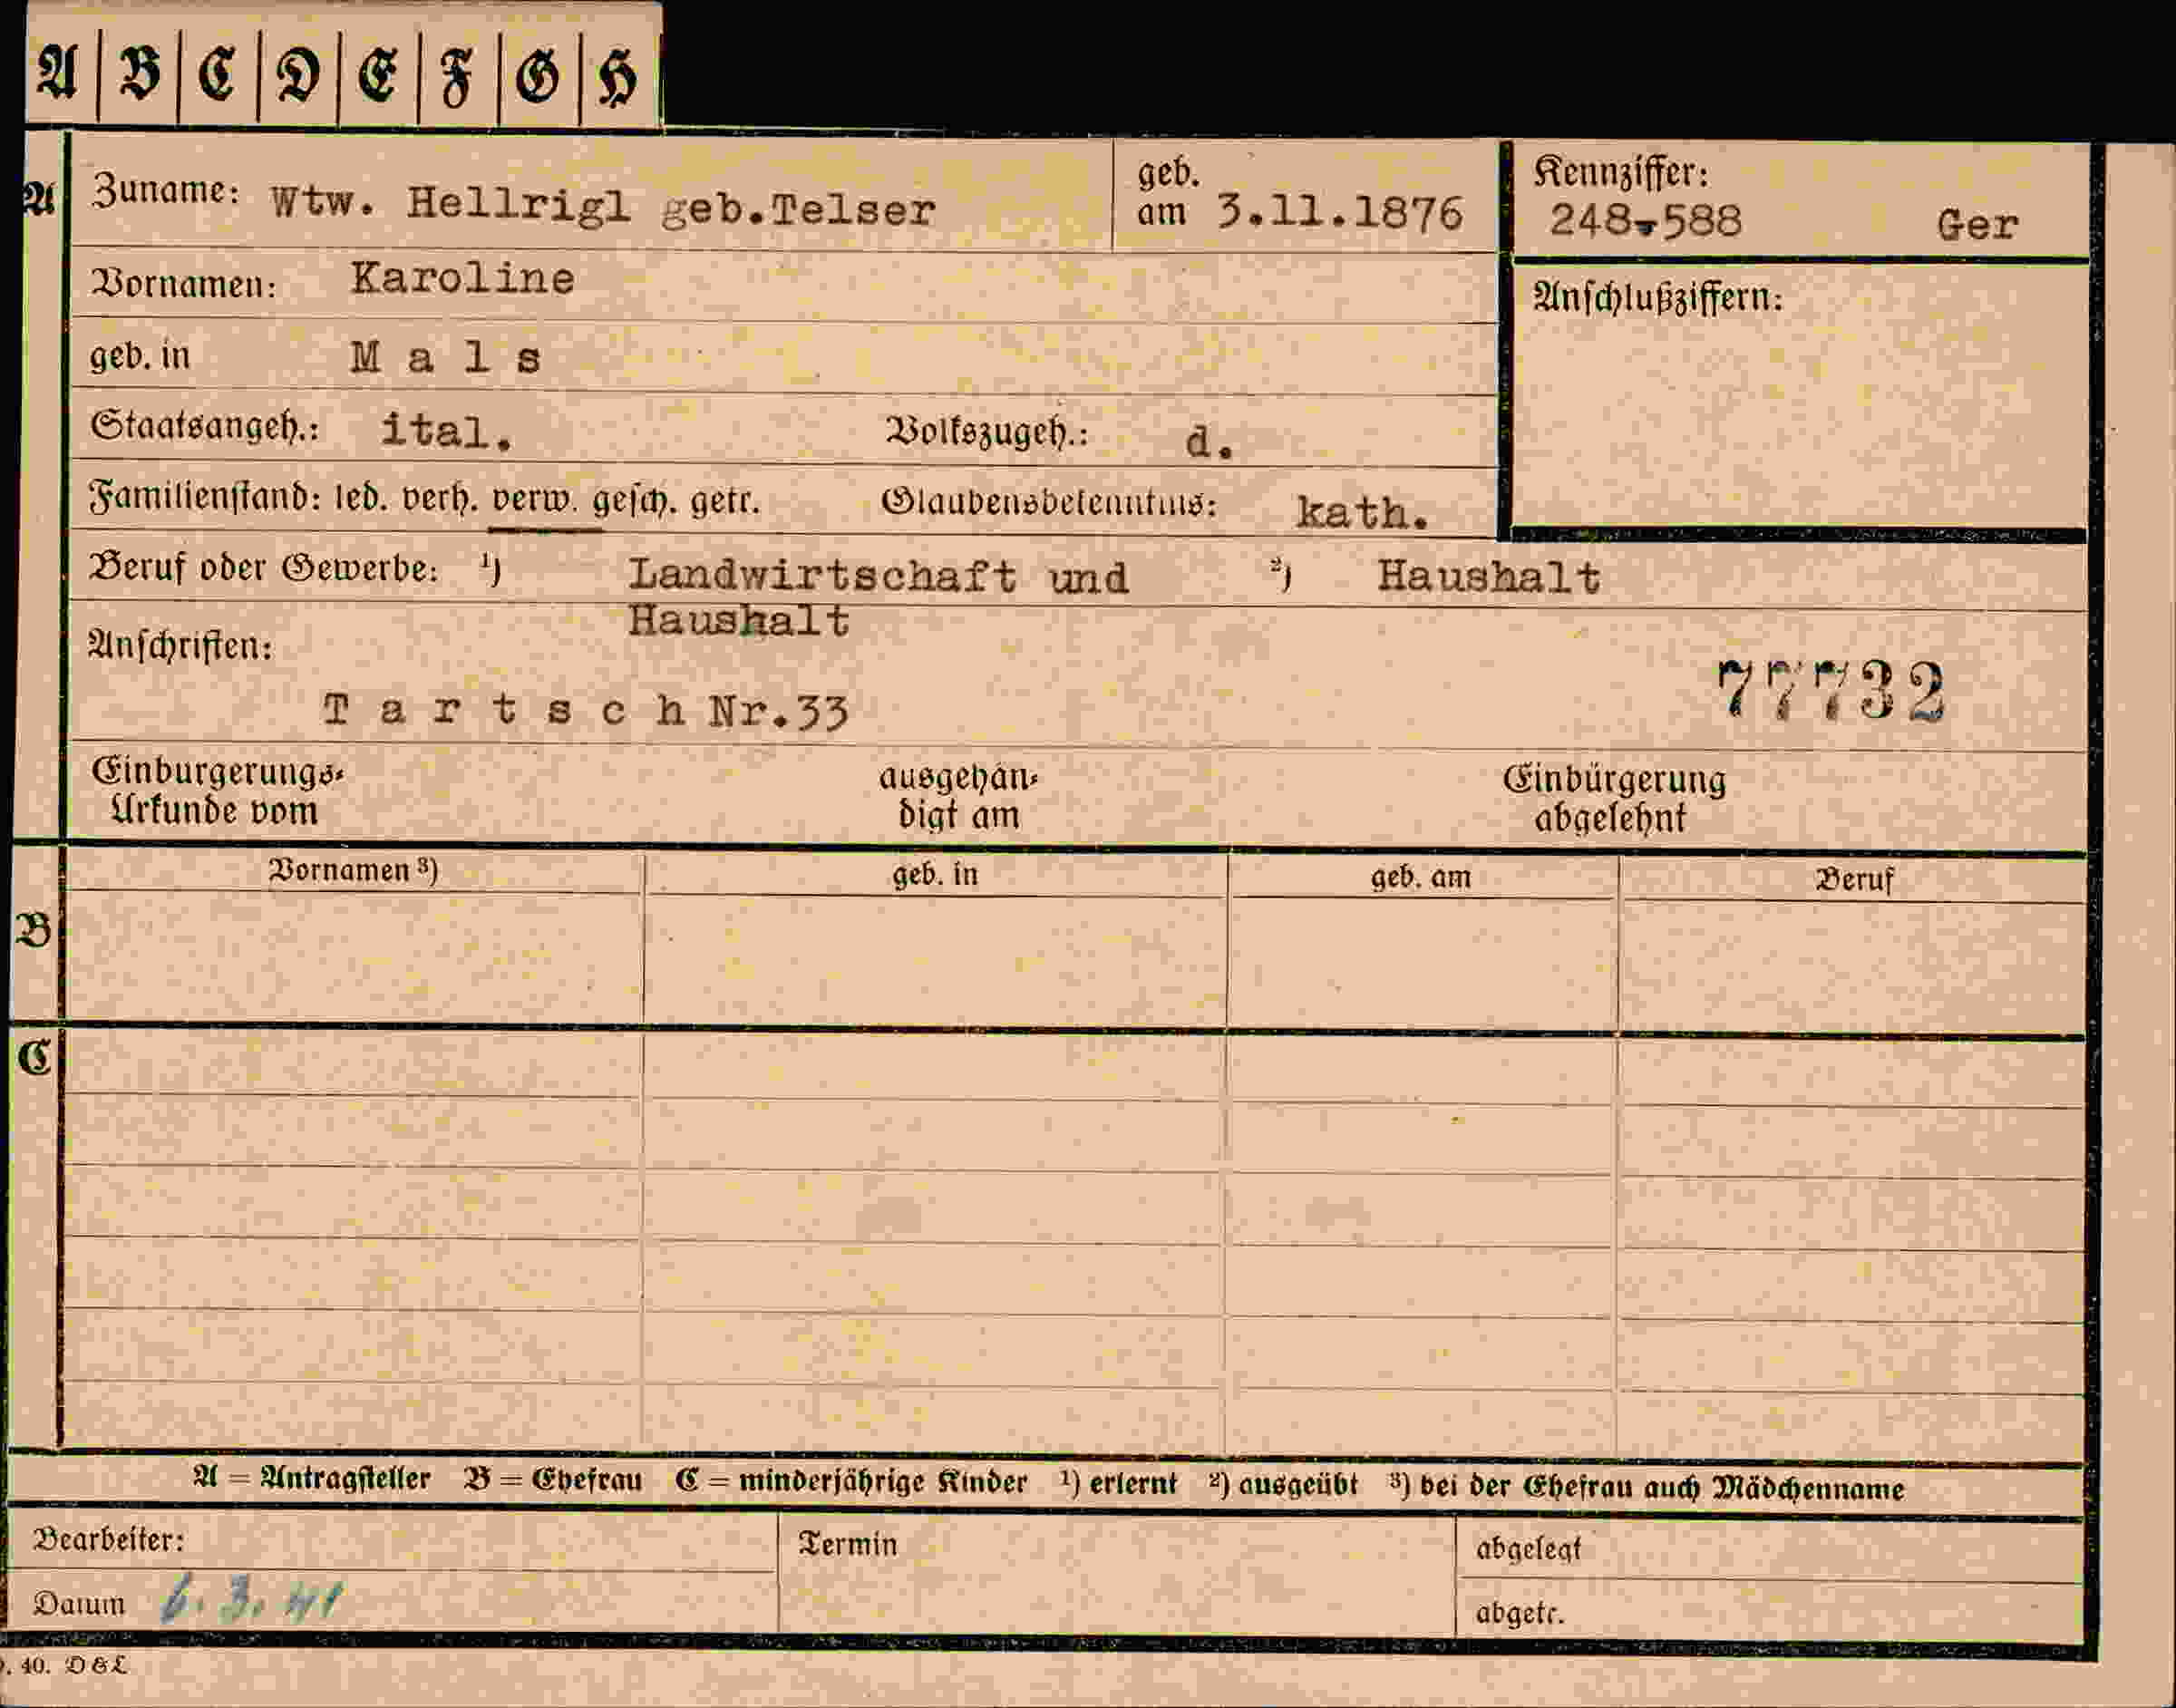 A | B | C | D | E | F | G | H
A Zuname: Wtw. Hellrigl geb.Telser geb. am 3.11.1876 Kennziffer: 248-588 Ger
Vornamen: Karoline Anschlußziffern:
geb. in M a l s
Staatsangeh.: ital. Volkszugeh.: d.
Familienstand: led. verh. verw. gesch. getr. Glaubensbekenntnis: kath.
Beruf oder Gewerbe: ¹) Landwirtschaft und ²) Haushalt
Haushalt
Anschriften:
77732
T a r t s c h Nr.33
Einbürgerungs- ausgehän- Einbürgerung
Urkunde vom digt am abgelehnt
Vornamen ³) geb. in geb. am Beruf
B
C
A = Antragsteller B = Ehefrau C = minderjährige Kinder ¹) erlernt ²) ausgeübt ³) bei der Ehefrau auch Mädchenname
Bearbeiter: Termin abgelegt
Datum 6. 3. 41 abgetr.
. 40. D&L